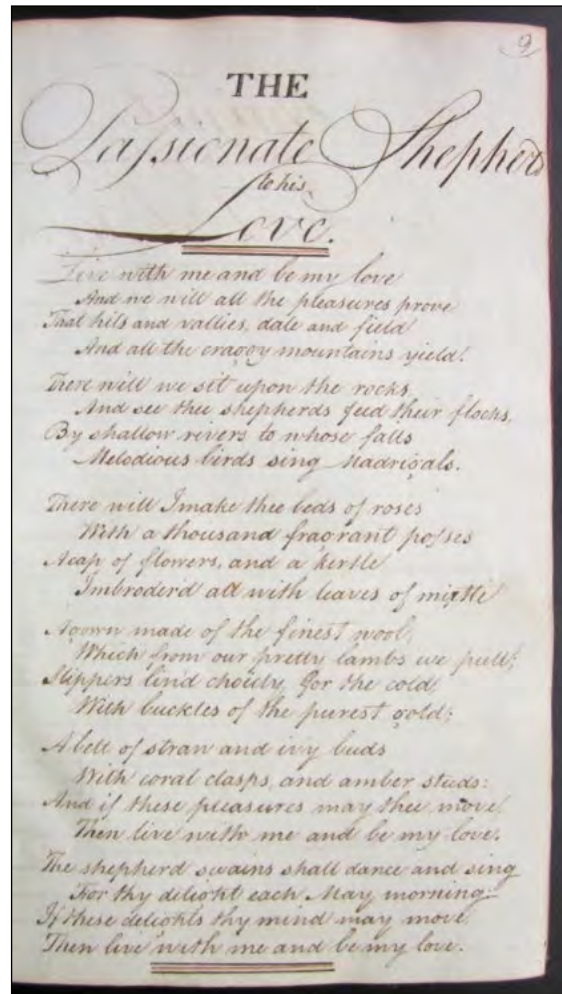 9
THE
Passionate Shepherd
to his
Love.
Live with me and be my love
And we will all the pleasures prove
That hils and vallies, dale and field
And all the craggy mountains yield.
There will we sit upon the rocks
And see thee shepherds feed their flocks,
By shallow rivers to whose falls
Melodious birds sing Madrigals.
There will I make thee beds of roses
With a thousand fragrant posses
A cap of flowers, and a kertle
Imbroder'd all with leaves of mirtle
A gown made of the finest wool,
Which from our pretty lambs we pull;
Slippers lin'd choicly for the cold,
With buckles of the purest gold;
A belt of straw and ivy buds
With coral clasps, and amber studs:
And if these pleasures may thee move,
Then live with me and be my love.
The shepherd swains shall dance and sing
For thy delight each May morning:
If these delights thy mind may move,
Then live with me and be my love.